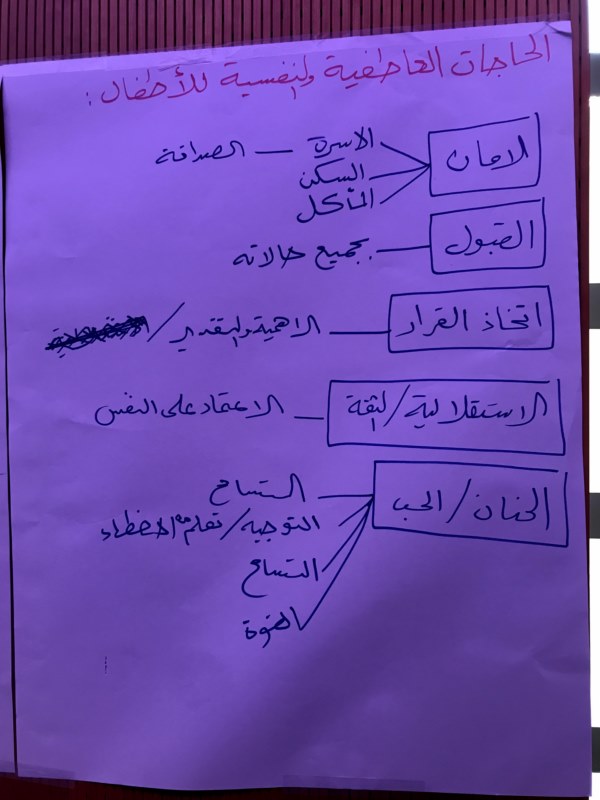 الحاجات العاطفية والنفسية للأطفال :
الامان
الاسرة – الصداقة
السكن
المأكل
القبول – بجميع حالاته
اتخاذ القرار – الاهمية والتقدير /
الاستقلالية / الثقة – الاعتماد على النفس
الحنان / الحب
التسامح
التوجيه / تعلم من الاخطاء
التسامح